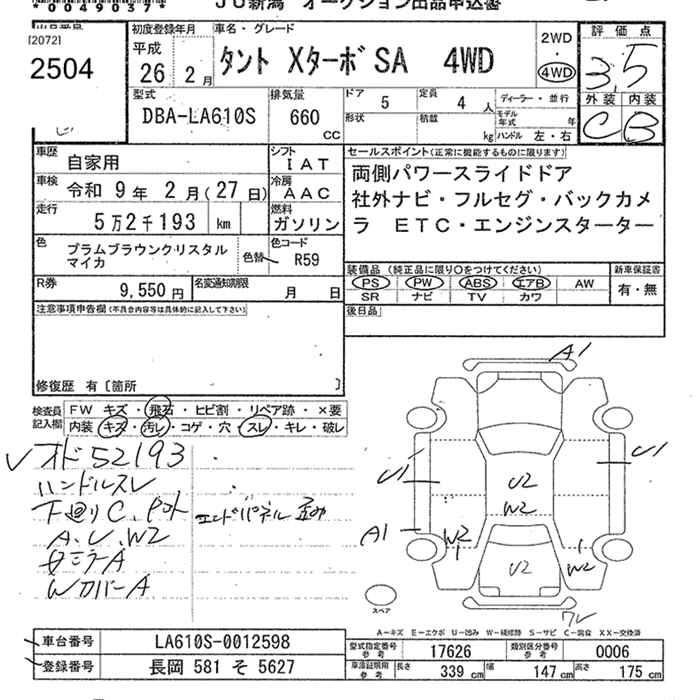 *0049037*
JU新潟 オークション出品申込書
[20772]
2504
初度登録年月
平成
26年 2月
車名・グレード
タント XターボSA 4WD
2WD
4WD
評価点
3.5
外装 内装
C B
型式
DBA-LA610S
排気量
660
CC
ドア
5
定員
4人
ディーラー・並行
形状
積載
kg
モデル年式
年
ハンドル 左・右
車歴
自家用
シフト
IAT
車検
令和 9年 2月(27日)
冷房
AAC
走行
5万2千193 km
燃料
ガソリン
色
プラムブラウンクリスタル
マイカ
色替
色コード
R59
セールスポイント(正常に機能するものに限ります)
両側パワースライドドア
社外ナビ・フルセグ・バックカメ
ラ ETC・エンジンスターター
装備品(純正品に限り○をつけてください)
PS PW ABS エアB AW
SR ナビ TV カワ
新車保証書
有・無
R券
9,550円
名変通知期限
月 日
注意事項申告欄(不具合内容等は具体的に記入して下さい)
後日品
修復歴 有〔箇所 〕
検査員
記入欄
FW キズ・飛石・ヒビ割・リペア跡・×要
内装 キズ・汚レ・コゲ・穴・スレ・キレ・破レ
オド52193
ハンドルスレ
下廻りC、
エンドパネル歪み
A、U、W2
カバーA
A1
U1
U1
A1
U2
W2
W2
W2
U2
スペア
A-キズ E-エクボ U-凹み W-補修跡 S-サビ C-腐食 XX-交換済
車台番号
LA610S-0012598
登録番号
長岡 581 そ 5627
型式指定番号
参考
17626
類別区分番号
参考
0006
車庫証明用
参考
長さ 339cm 幅 147cm 高さ 175cm